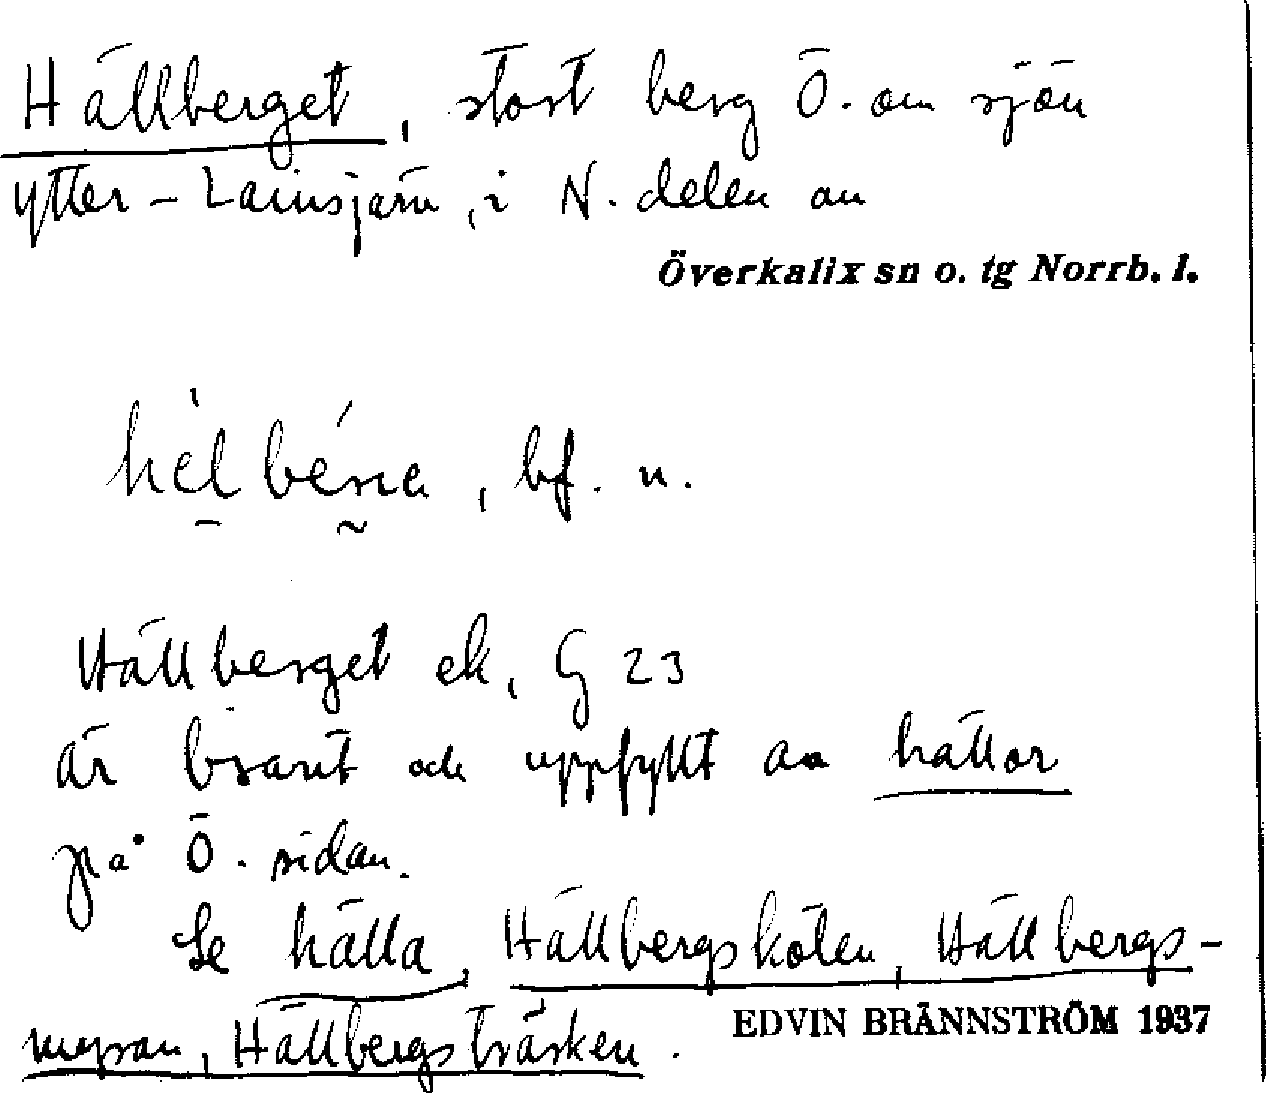 Hällberget, stort berg Ö. om sjön
Ytter-Lainsjärv, i N. delen av
Överkalix sn o. tg Norrb. l.
bf. n.
Hällberget ek, G 23
är brant och uppfyllt av hällor
på Ö. sidan.
Se hälla, Hällbergskölen, Hällbergs-
myran, Hällbergsträsken.
EDVIN BRÄNNSTRÖM 1937